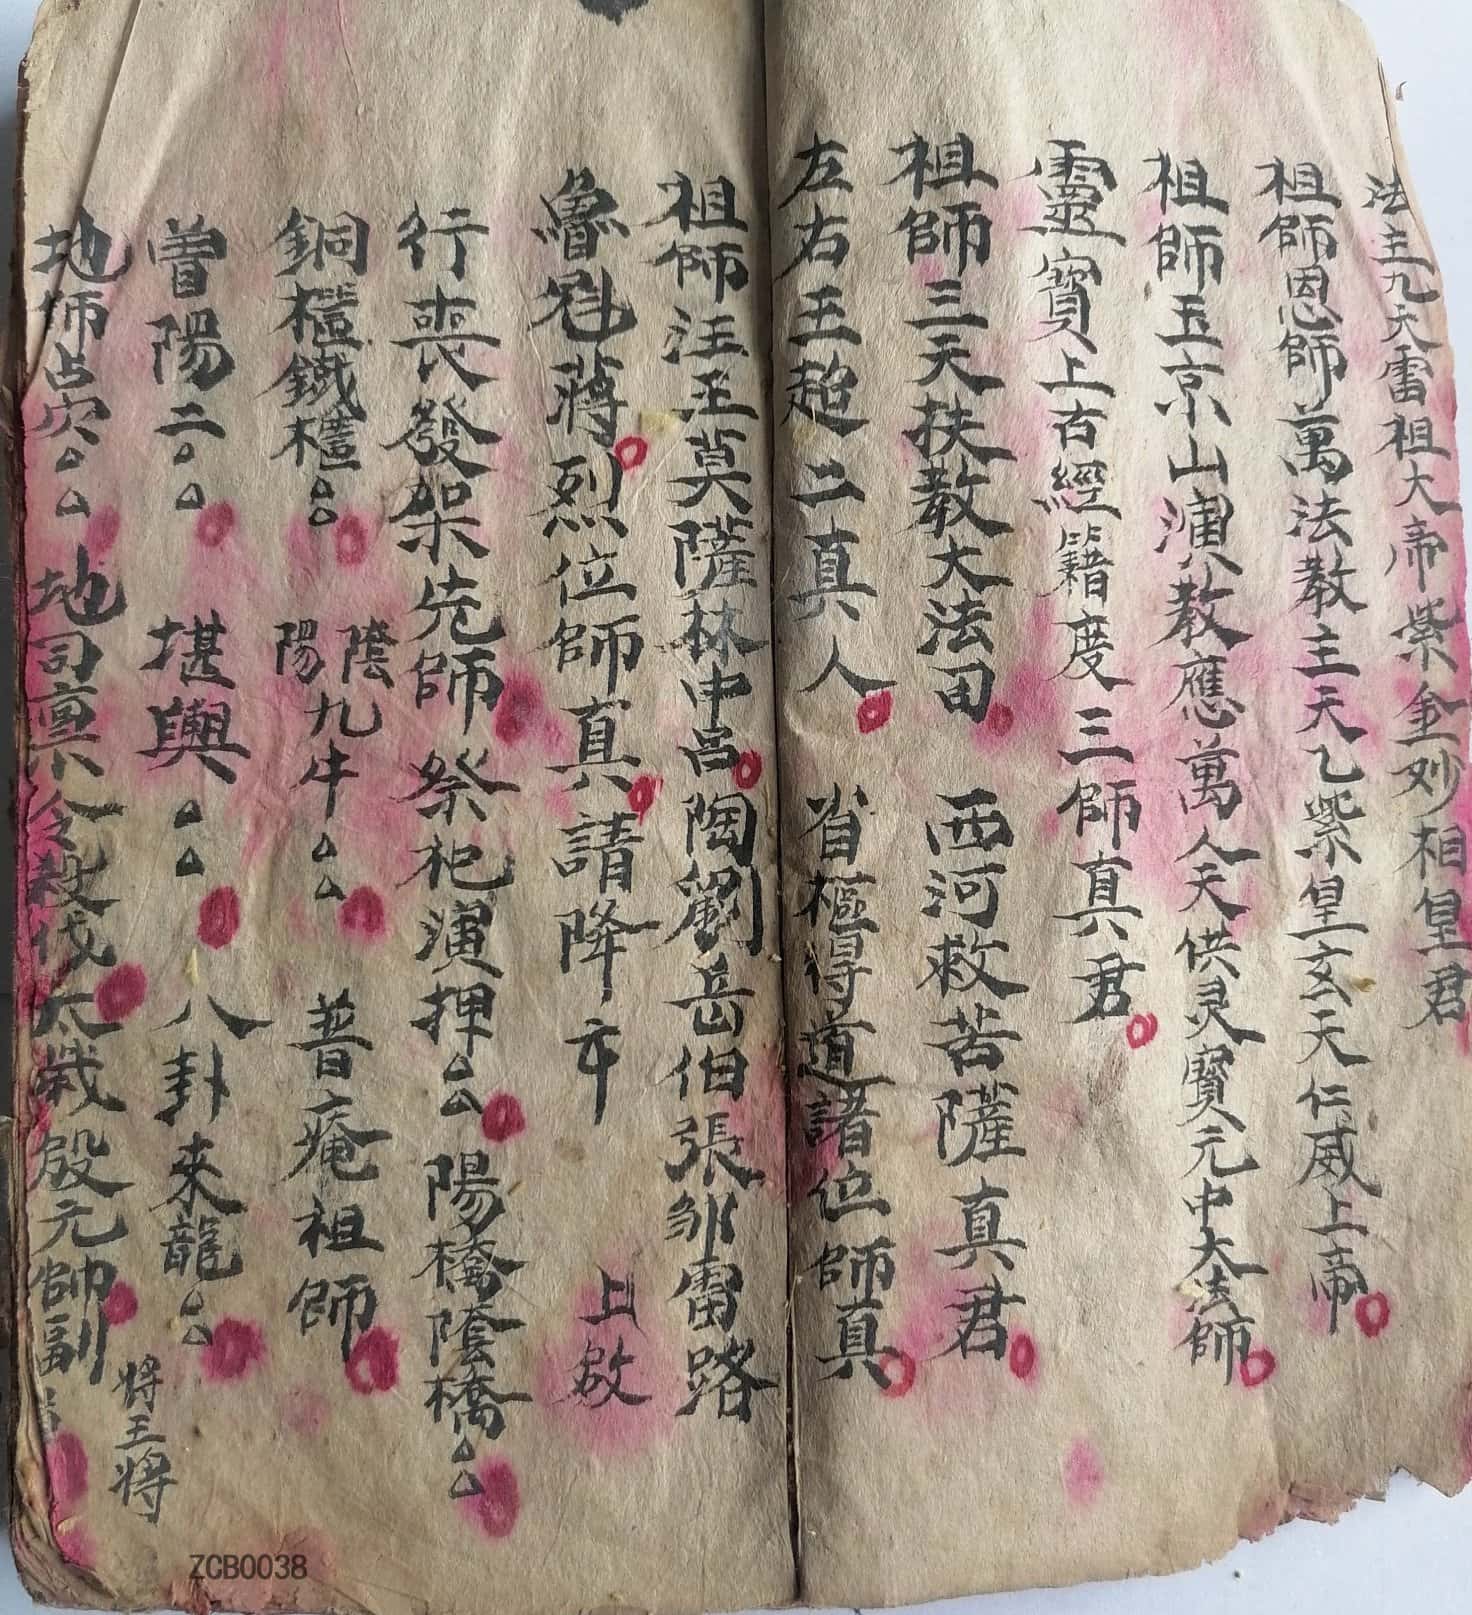 法主九天雷祖大帝紫金妙相皇君
祖師恩師萬法教主天乙紫皇玄天仁威上帝
祖師玉京山演教應萬人天供灵寶元中大法師
靈寶上百經籍度三師真君
祖師三天扶教大法田 西河救苦薩真君
左右王超二真人 省樞得道諸位師真
祖師汪王莫薩林中呂陶劉岳伯張鄒雷路
魯 蔣烈位師真請降 上啟
行喪發架先師 祭祀演押 陽橋陰橋
銅櫃鐵櫃 陰陽九牛 普庵祖師
曾陽二 堪輿 八卦來龍
地師占穴 地司稟令殺伐太歲殷元帥副
将王将
ZCB0038